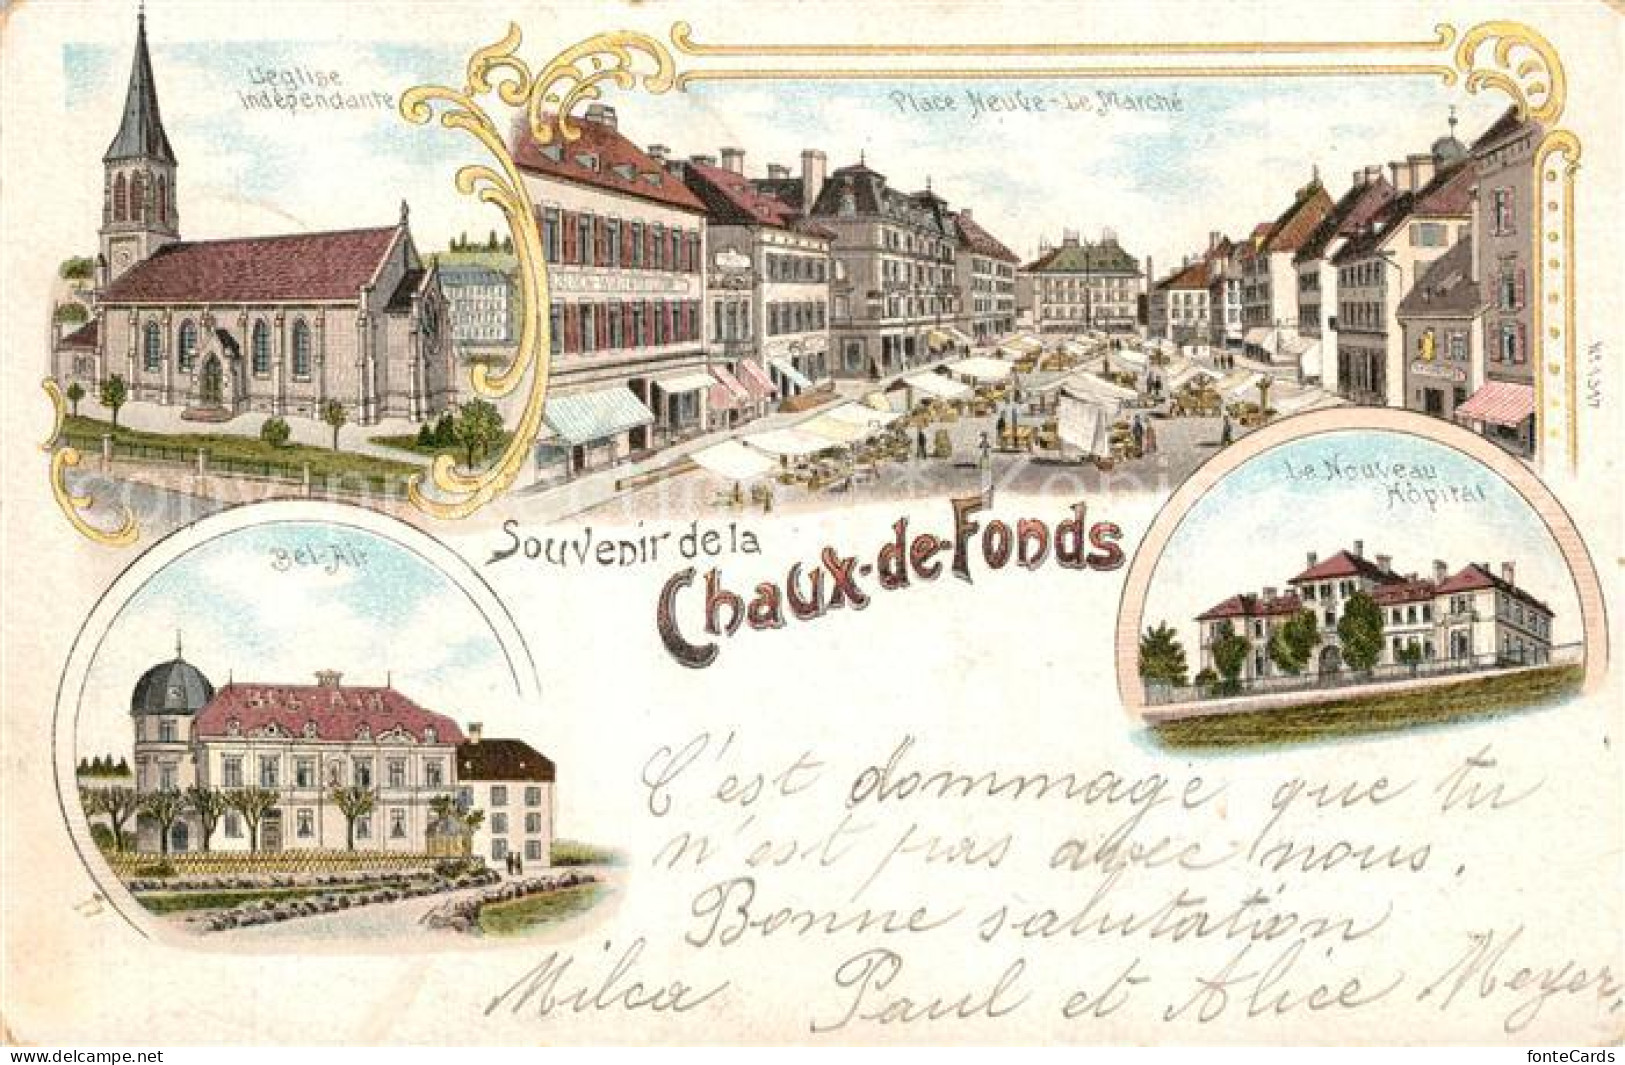 L'église
indépendante
Place Neuve - Le Marché
Le Nouveau
Hôpital
Bel-Air
BEL-AIR
Souvenir de la
Chaux-de-Fonds
C'est dommage que tu
n'est pas avec nous.
Bonne salutation
Milca Paul et Alice Meyer.
www.delcampe.net
fonteCards